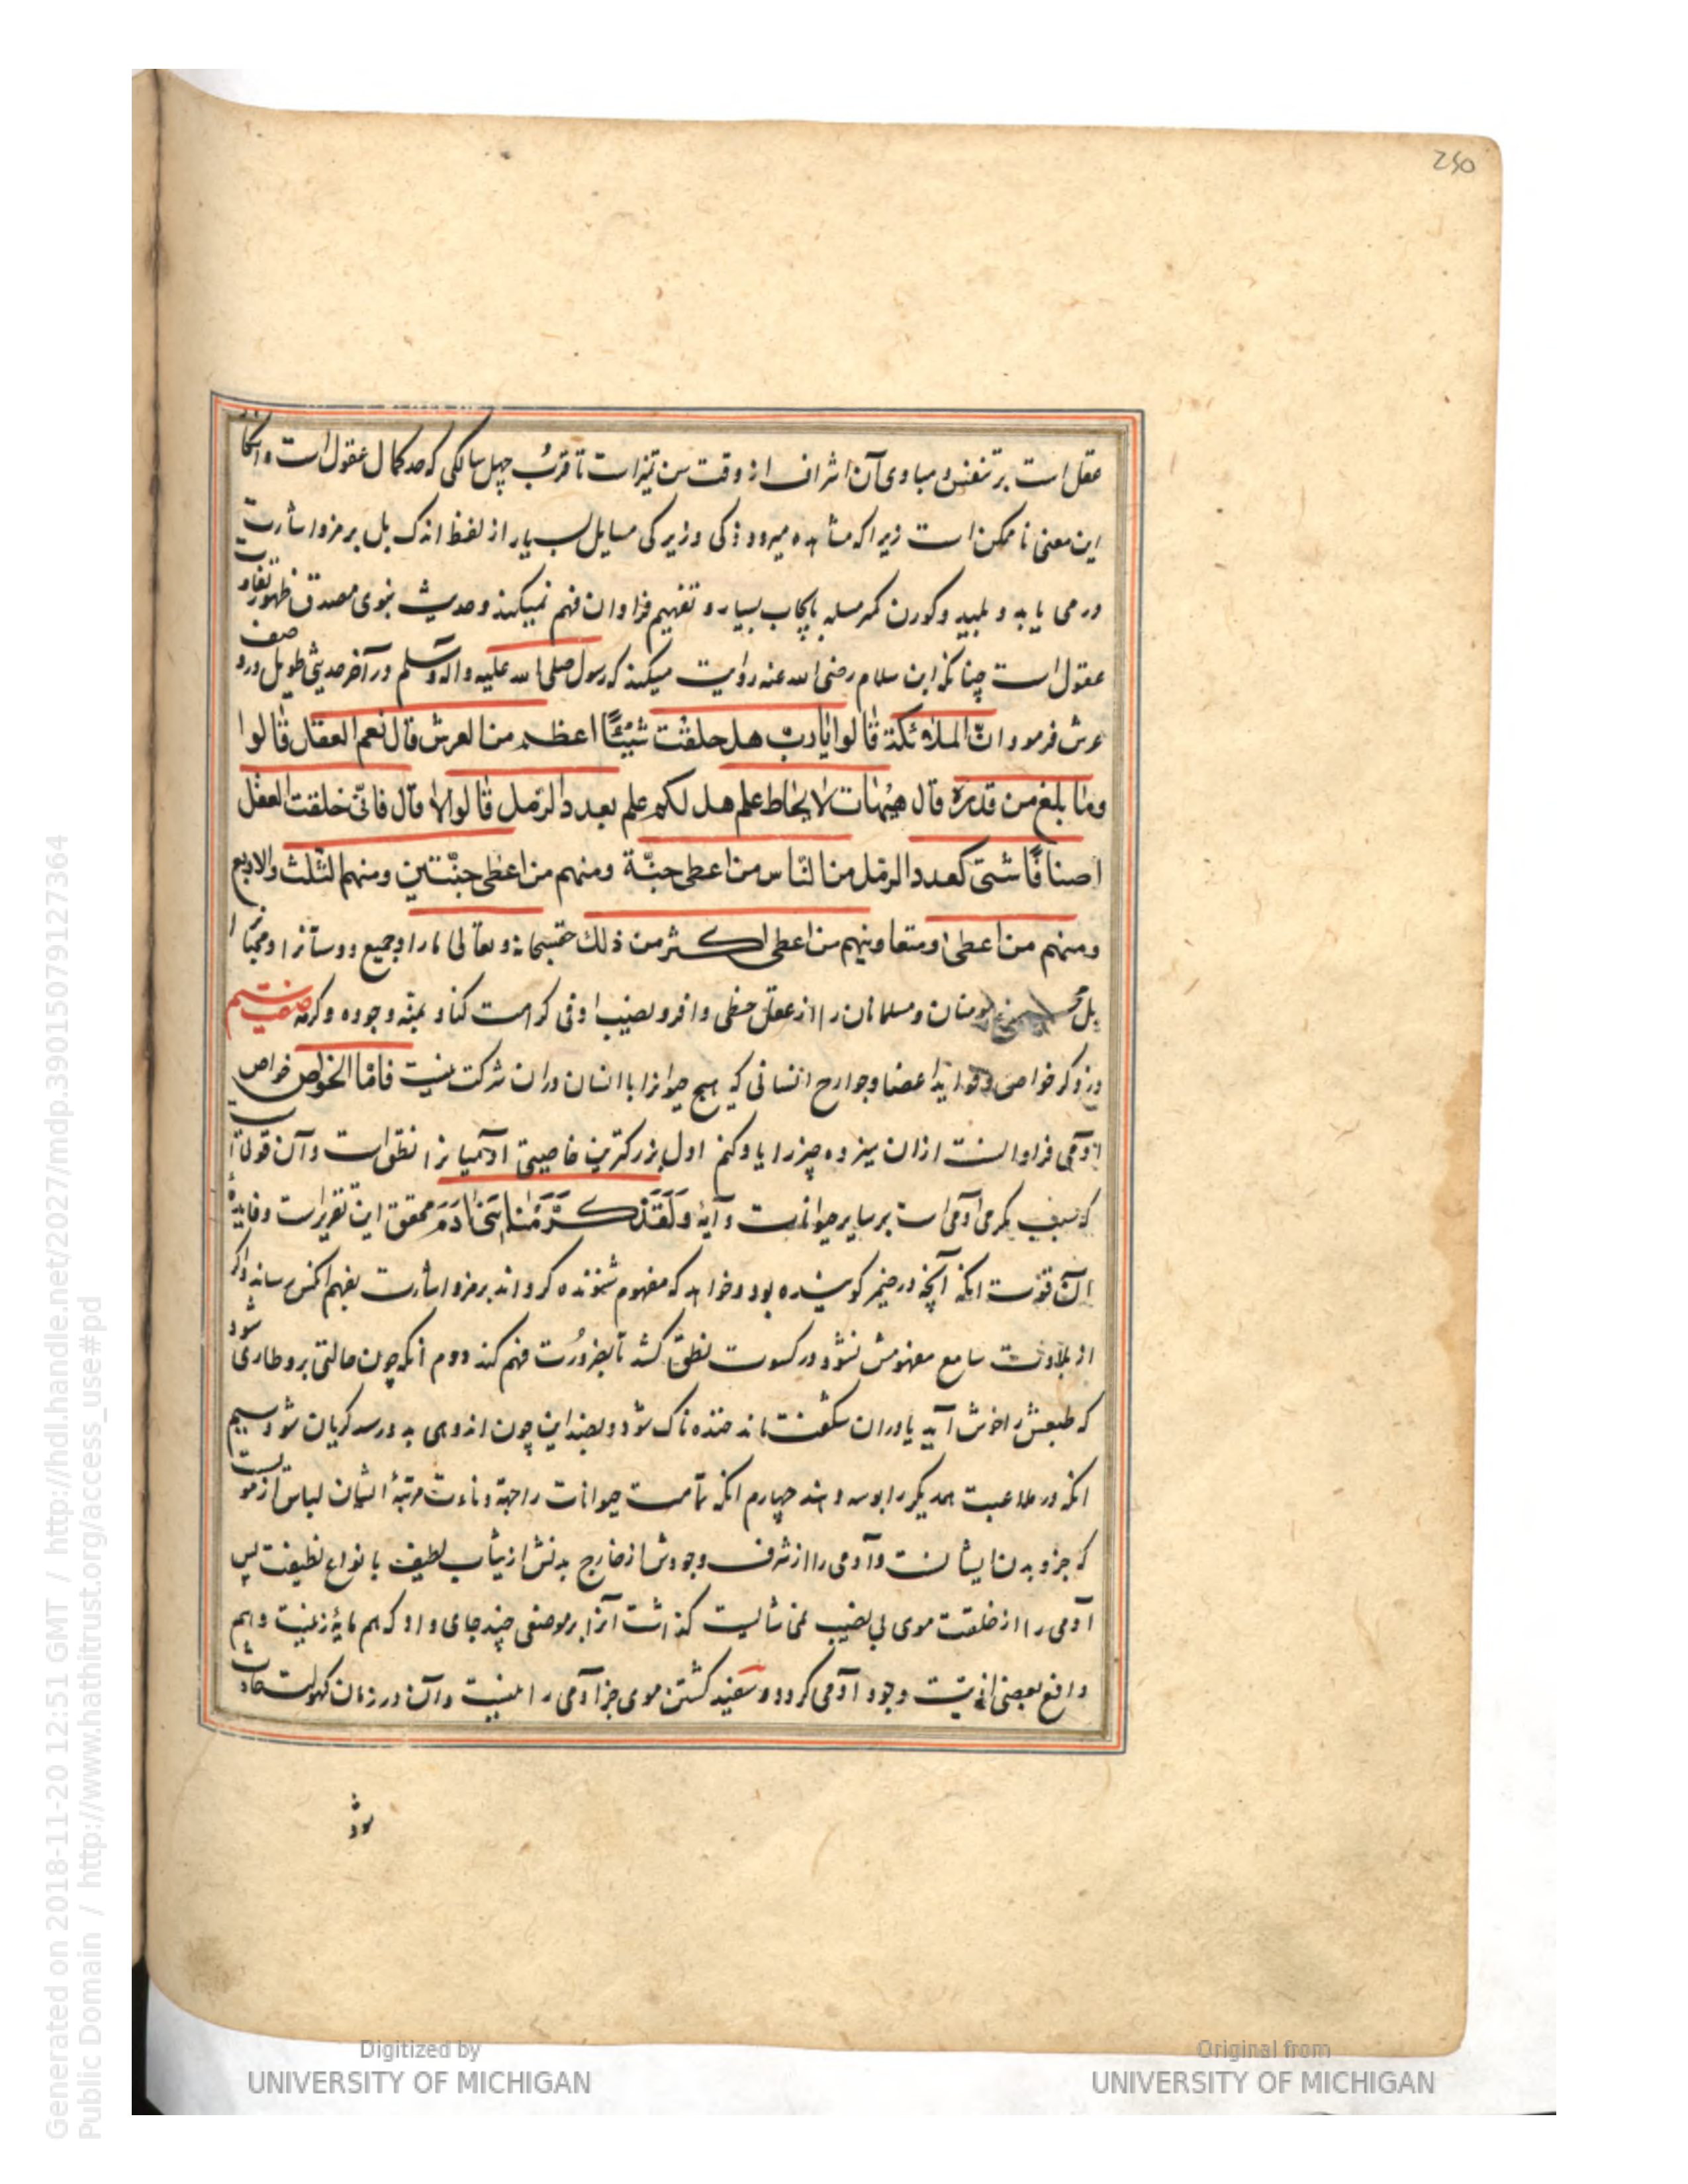 250
عقل است بر تنفس و مبادی آن اشراف از وقت سن تمیز است تا قرب چهل سالگی که حد کمال عقول است و انکار
این معنی ناممکن است زیرا که مشاهده میرود ذکی و زیرکی مسایل بسیار از لفظ اندک بل بر مزو اشارت
در می یابد و بلید و کودن کمر مسله بایجاب بسیار و تفهیم فراوان فهم نمیکند و حدیث نبوی مصدق ظهور تفاوت
عقول است چنانکه ابن سلام رضی الله عنه روایت میکند که رسول صلی الله علیه واله وسلم در آخر حدیثی طویل در وصف
عرش فرمود ان الملائکة قالوا یا رب هل خلقت شیئًا اعظم من العرش قال نعم العقل قالوا
وما بلغ من قدره قال هیهات لا یحاط علمه هل لکم علم بعدد الرمل قالوا لا قال فانی خلقت العقل
اصنافًا شتی کعدد الرمل من الناس من اعطی حبّة ومنهم من اعطی حبّتین ومنهم الثلث والاربع
ومنهم من اعطی ومنهم من اعطی اکثر من ذلک حق سبحانه و تعالی ما را و جمیع دوستانرا و محبان
بل مومنان و مسلمانان را از عقل حظی وافر و نصیب اوفی کرامت کناد بمنّه وجوده وکرمه
در ذکر خواص و فواید اعضا و جوارح انسانی که هیچ حیوانرا با انسان دران شرکت نیست فاما الخواص خواص
آدمی فراوانست ازان سیزده چیز را یاد کنم اول بزرکترین خاصیتی آدمیانرا نطق است و آن قوتی
که سبب مکرمی آدمی است بر سایر حیوانات و آیهٔ وَلَقَدْ کَرَّمْنَا بَنِی آدَمَ محقق این تقریر است و فایدهٔ
آن قوت انکه آنچه در ضمیر کوینده بود و خواهد که مفهوم شنونده کرداند بر مزو اشارت بفهم انکس رساند و اکر
از بلادت سامع مفهومش نشود در کسوت نطق کشد تا بضرورت فهم کند دوم انکه چون حالتی برو طاری شود
که طبعش را خوش آید یا دران شکفت ماند خنده ناک شود و بضد این چون اندوهی بدو رسد کریان شود سیم
انکه در ملاعبت همدیکر را بوسه دهند چهارم انکه تمامت حیوانات را جهة دناءت مرتبهٔ ایشان لباس از موست
که جزو بدن ایشانست و آدمی را از شرف وجودش از خارج بدنش از ثیاب لطیف با نواع نظیفت پس
آدمی را از خلقت موی بی نصیب نمی شایست کذاشت آنرا بر موضعی چند جای داد که هم مایهٔ زینت و هم
دافع بعضی اذیت وجود آدمی کردد و سفید کشتن موی جز آدمی را نیست و آن در زمان کهولت حادث
شود
Digitized by
UNIVERSITY OF MICHIGAN
Original from
UNIVERSITY OF MICHIGAN
Generated on 2018-11-20 12:51 GMT / http://hdl.handle.net/2027/mdp.39015079127364
Public Domain / http://www.hathitrust.org/access_use#pd